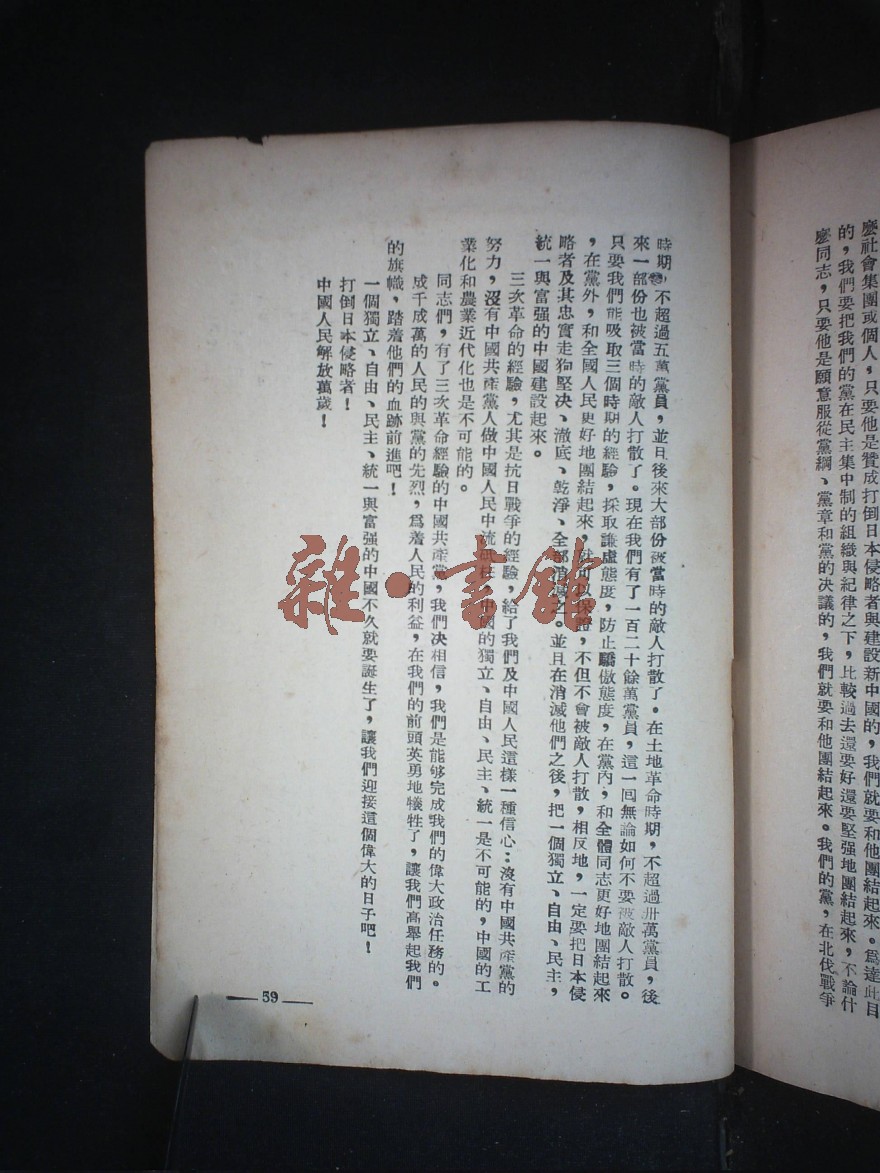 麼社會集團或個人，只要他是贊成打倒日本侵略者與建設新中國的，我們就要和他團結起來。爲達此目
的，我們要把我們的黨在民主集中制的組織與紀律之下，比較過去還要好還要堅强地團結起來，不論什
麼同志，只要他是願意服從黨綱、黨章和黨的决議的，我們就要和他團結起來。我們的黨，在北伐戰爭
時期，不超過五萬黨員，並且後來大部份被當時的敵人打散了。在土地革命時期，不超過卅萬黨員，後
來一部份也被當時的敵人打散了。現在我們有了一百二十餘萬黨員，這一回無論如何不要被敵人打散。
只要我們能吸取三個時期的經驗，採取謙虛態度，防止驕傲態度，在黨內，和全體同志更好地團結起來
，在黨外，和全國人民更好地團結起來，就可以保證，不但不會被敵人打散，相反地，一定要把日本侵
略者及其忠實走狗堅决、澈底、乾淨、全部消滅之。並且在消滅他們之後，把一個獨立、自由、民主，
統一與富强的中國建設起來。
三次革命的經驗，尤其是抗日戰爭的經驗，給了我們及中國人民這樣一種信心：沒有中國共產黨的
努力，沒有中國共產黨人做中國人民中流砥柱，中國的獨立、自由、民主、統一是不可能的，中國的工
業化和農業近代化也是不可能的。
同志們，有了三次革命經驗的中國共產黨，我們决相信，我們是能够完成我們的偉大政治任務的。
成千成萬的人民的與黨的先烈，爲着人民的利益，在我們的前頭英勇地犧牲了，讓我們高舉起我們
的旗幟，踏着他們的血跡前進吧！
一個獨立、自由、民主、統一與富强的中國不久就要誕生了，讓我們迎接這個偉大的日子吧！
打倒日本侵略者！
中國人民解放萬歲！
59
雜·書館